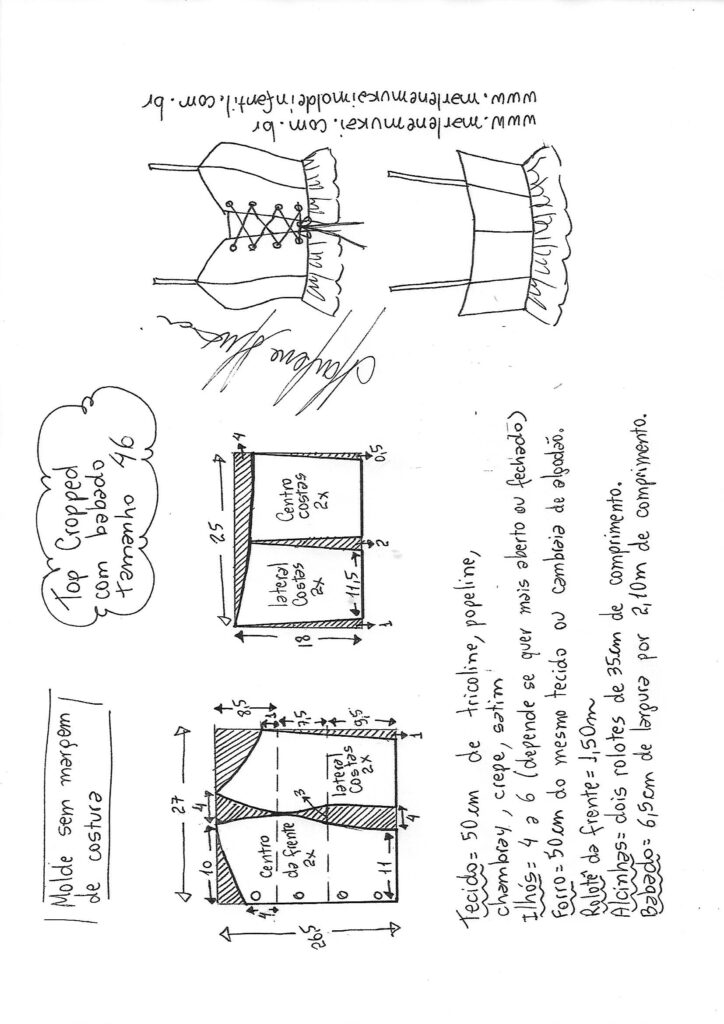 Molde sem margem
de costura
Top Cropped
com babado
tamanho 46
www.marlenemukai.com.br
www.marlenemukaimoldeinfantil.com.br
27
10
4
8,5
1
7,5
9,5
3
Centro
da frente
2x
lateral
Costas
2x
4
11
4
1
26,5
25
4
18
lateral
Costas
2x
Centro
costas
2x
11,5
1
2
0,5
Tecido= 50cm de tricoline, popeline,
chambray, crepe, satim
Ilhós= 4 a 6 (depende se quer mais aberto ou fechado)
Forro= 50cm do mesmo tecido ou cambraia de algodão.
Rolotê da frente= 1,50m
Alcinhas= dois rolotes de 35cm de comprimento.
Babado= 6,5cm de largura por 2,10m de comprimento.